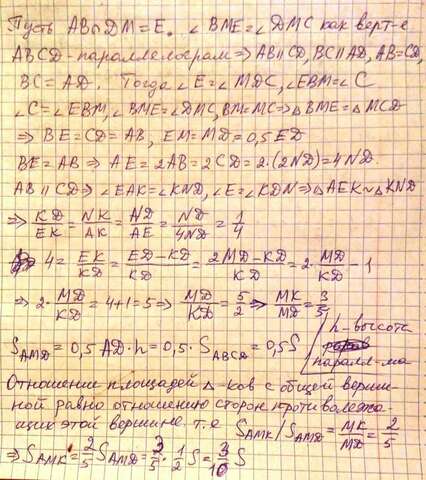 Пусть AB∩DM=E. ∠BME=∠DMC как верт-е
ABCD-параллелограм ⇒ AB||CD, BC||AD, AB=CD,
BC=AD. Тогда ∠E=∠MDC, ∠EBM=∠C
∠C=∠EBM, ∠BME=∠DMC, BM=MC ⇒ △BME=△MCD
⇒ BE=CD=AB, EM=MD=0,5ED
BE=AB ⇒ AE=2AB=2CD=2·(2ND)=4ND.
AB||CD ⇒ ∠EAK=∠KND, ∠E=∠KDN ⇒ △AEK∼△KND
⇒ KD/EK = NK/AK = ND/AE = ND/4ND = 1/4
4 = EK/KD = ED-KD/KD = 2MD-KD/KD = 2·MD/KD - 1
⇒ 2·MD/KD = 4+1=5 ⇒ MD/KD = 5/2 ⇒ MK/MD = 3/5
S_AMD = 0,5 AD·h = 0,5·S_ABCD = 0,5S / h-высота
паралл-ма
Отношение площадей △-ков с общей верши-
ной равно отношению сторон противолежа-
щих этой вершине. т.е S_AMK/S_AMD = MK/MD = 2/5
⇒ S_AMK = 2/5 S_AMD = 3/5 · 1/2 S = 3/10 S